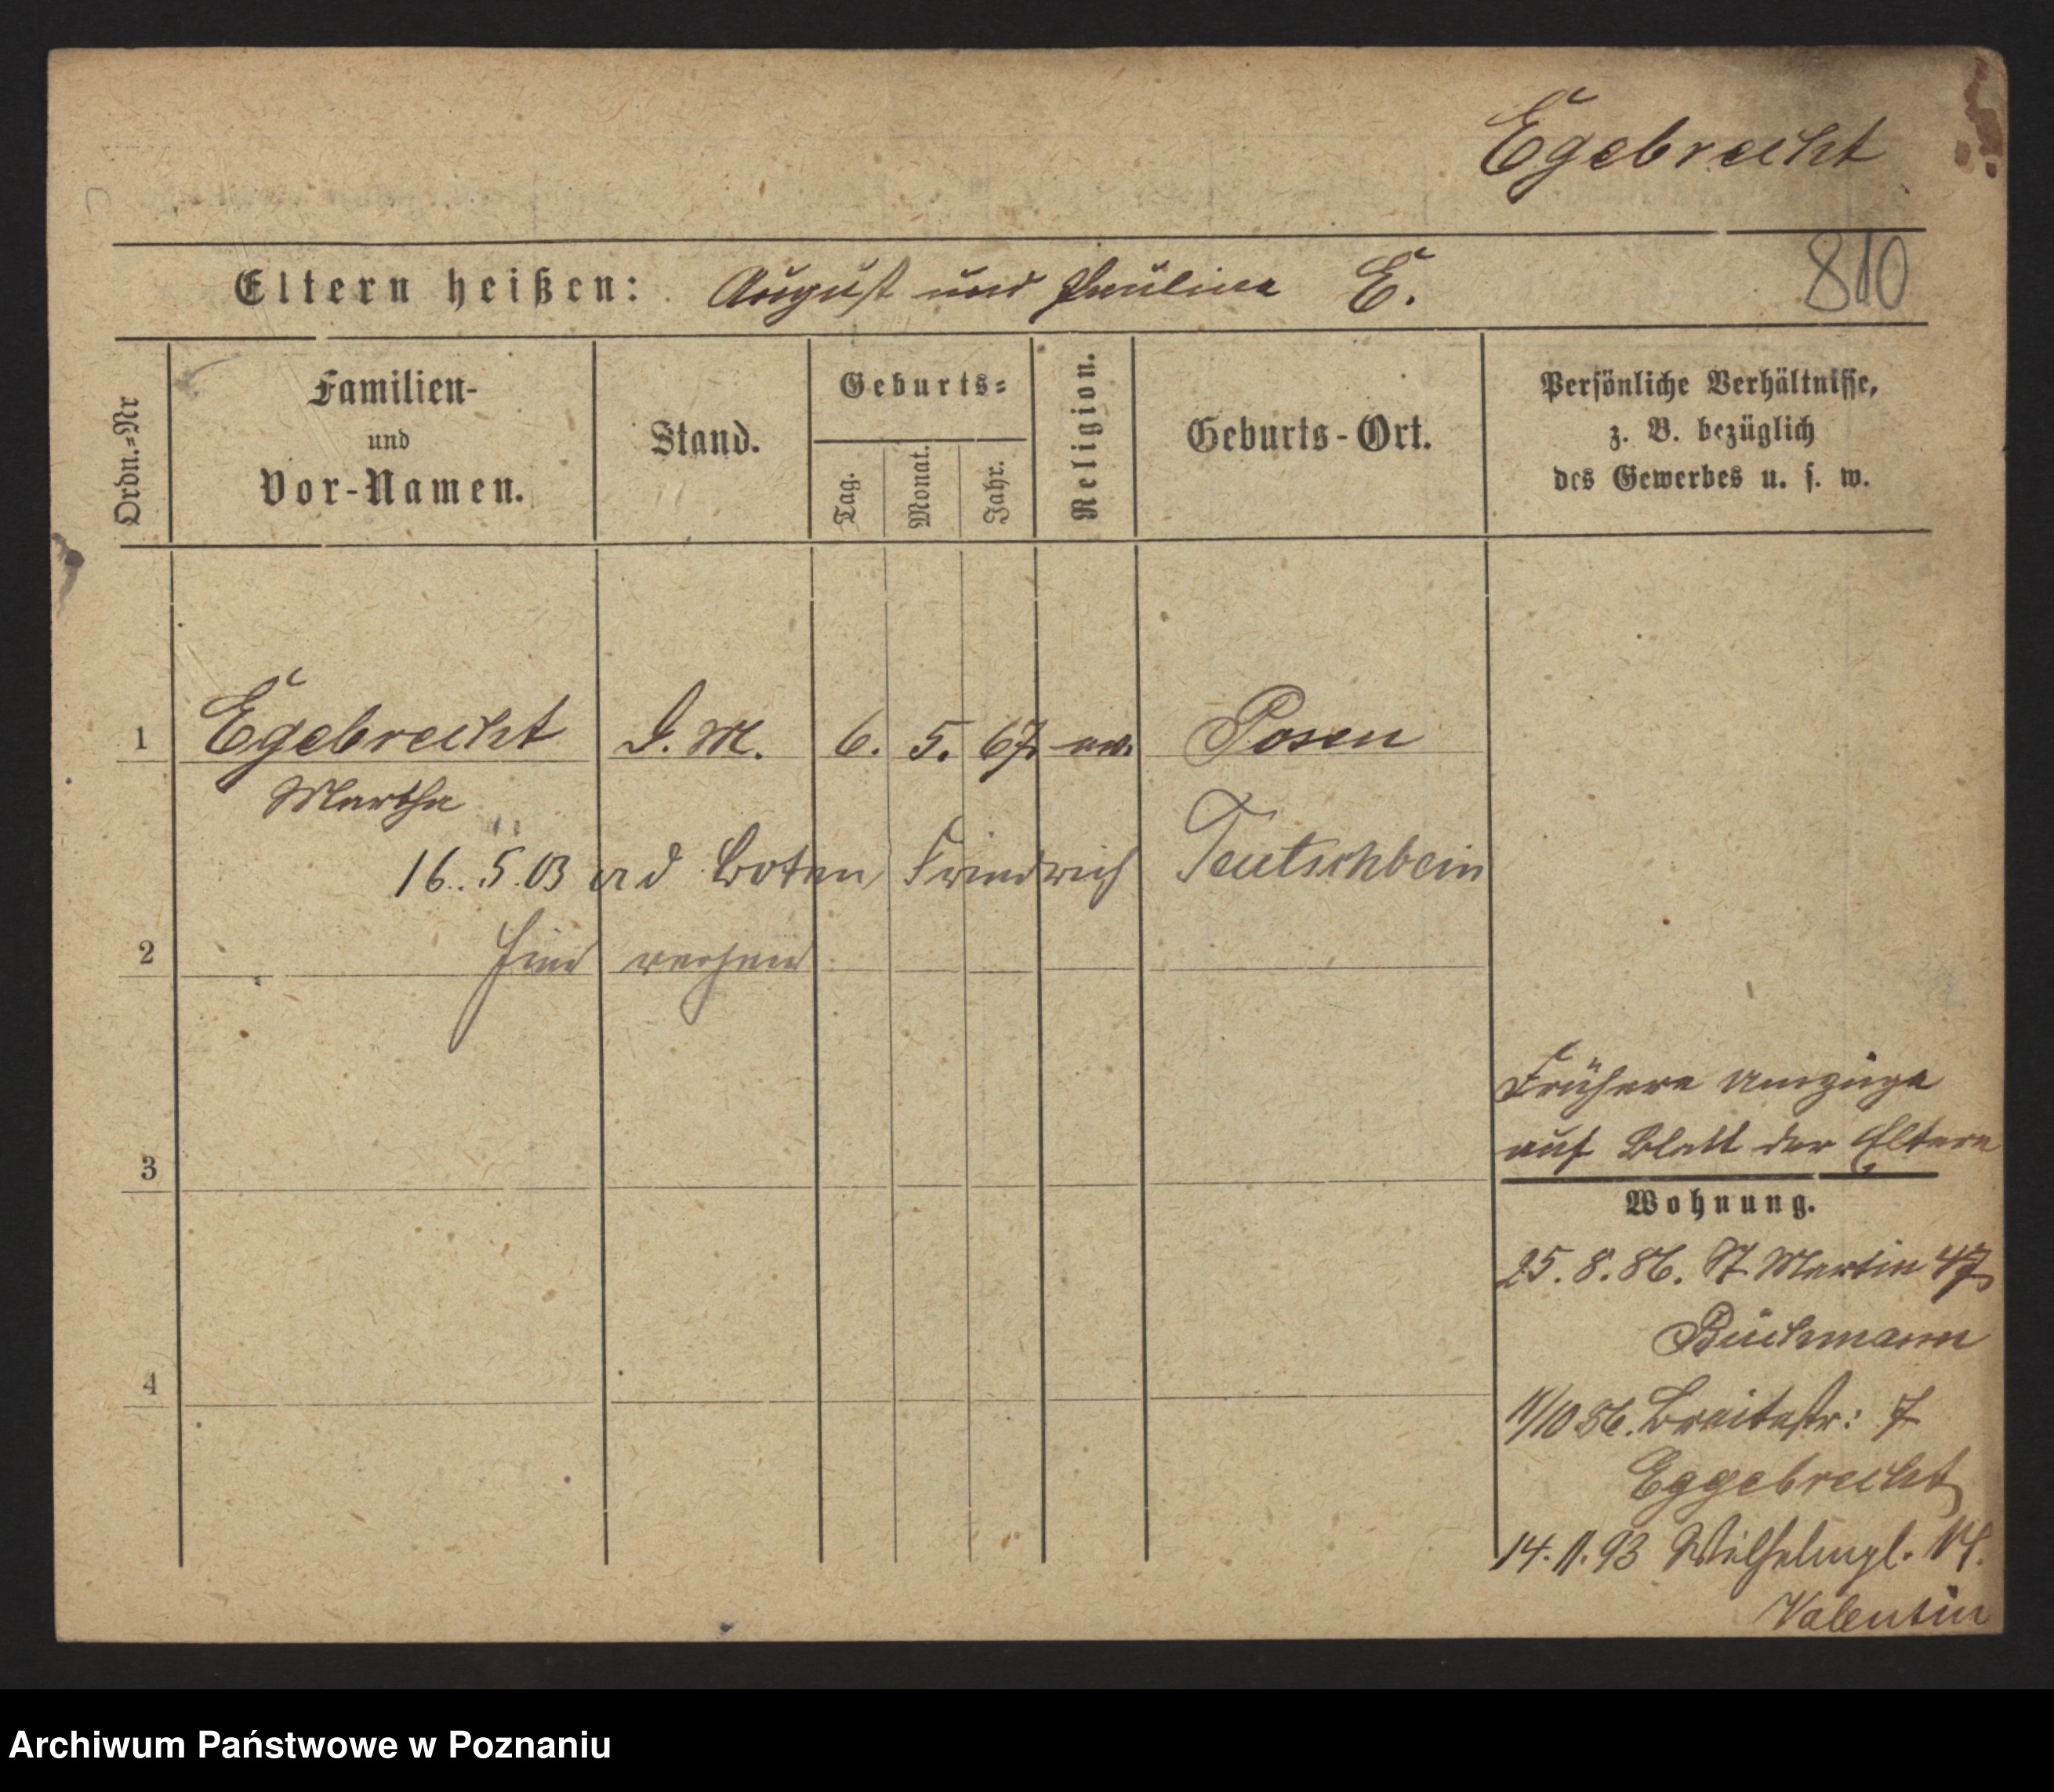 Egebrecht
810
Eltern heißen: August und Pauline E.
Ordn.-Nr
Familien-
und
Vor-Namen.
Stand.
Geburts-
Tag.
Monat.
Jahr.
Religion.
Geburts-Ort.
Persönliche Verhältnisse,
z. B. bezüglich
des Gewerbes u. s. w.
1 Egebrecht D. M. 6. 5. 67 ev. Posen
Martha
16. 5. 03 ad Boten Friedrich Teutschbein
hier
2
3
4
Frühere Umzüge
auf Blatt der Eltern
Wohnung.
25. 8. 86. St Martin 47
Büchmann
11/10 86. Breitestr: 7
Eggebrecht
14. 11. 93 Wilhelmpl. 14.
Valentin
Archiwum Państwowe w Poznaniu